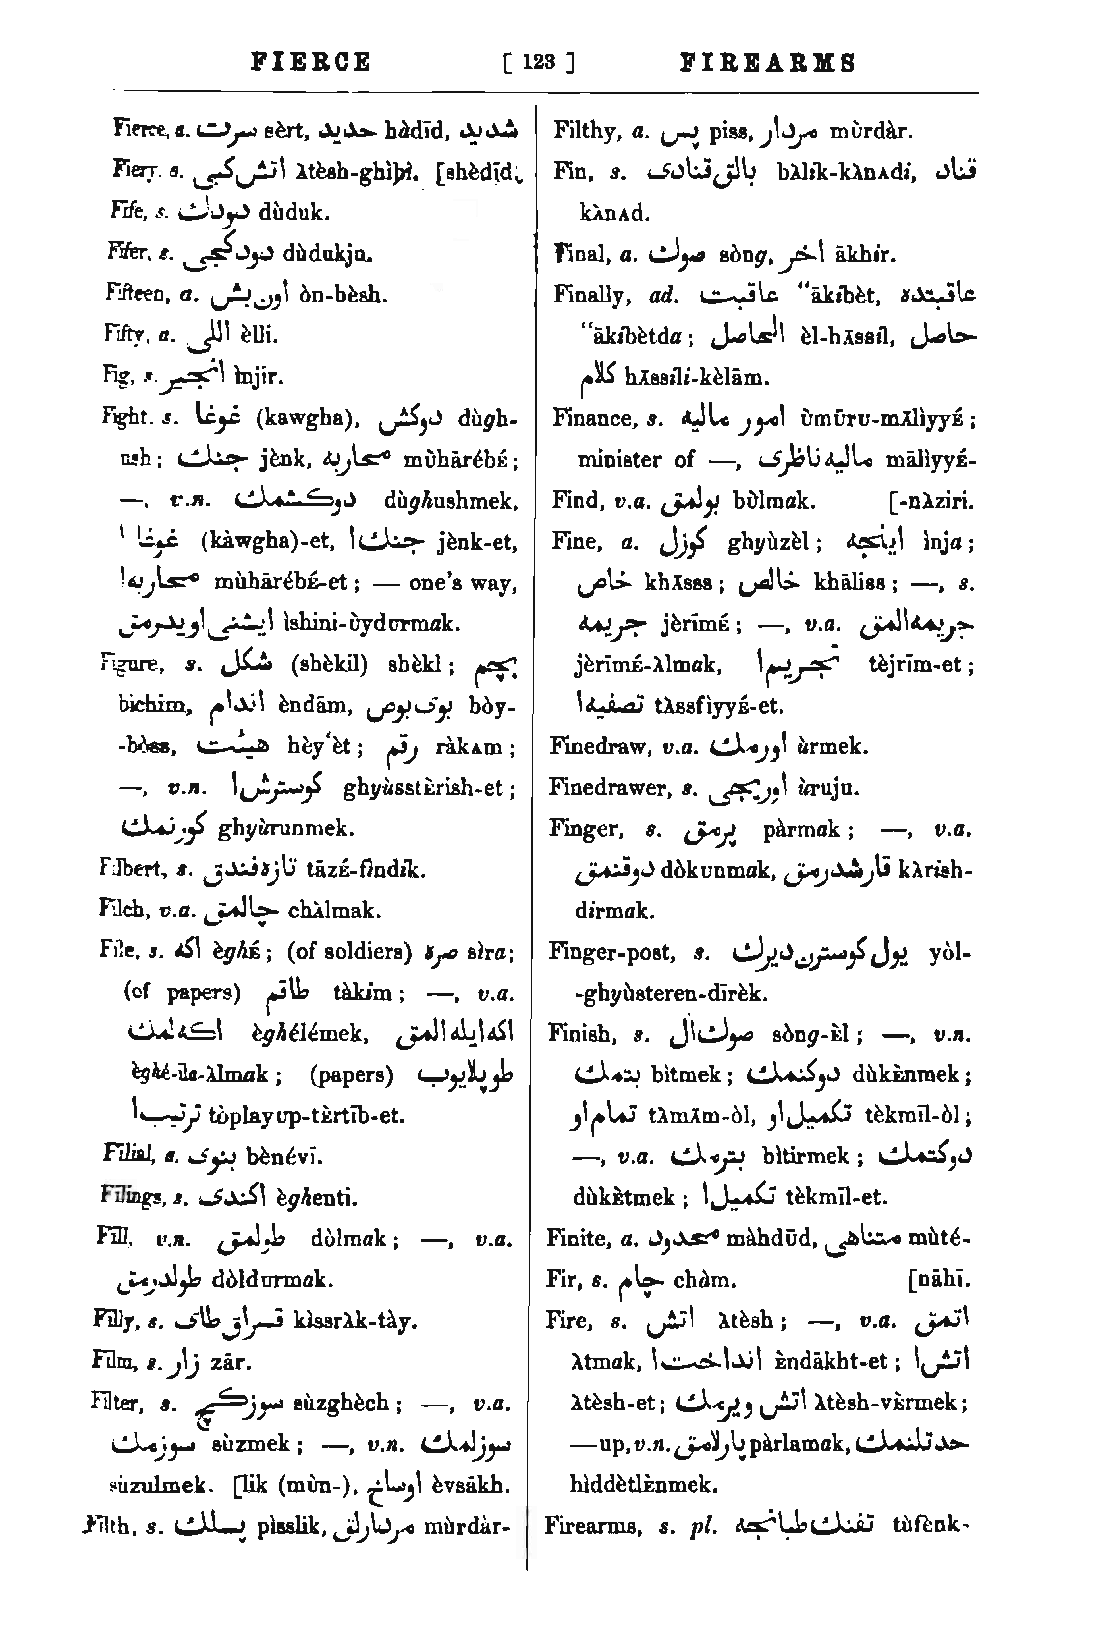 FIERCE [ 123 ] FIREARMS
Fierce, a. سرت sèrt, حديد hàdīd, شديد
Fiery. s. اتش كبى λtèsh-ghìbi. [shèdīd;
Fife, s. دودك dùduk.
Fifer, s. دودكجى dùdukju.
Fifteen, a. اون بش òn-bèsh.
Fifty, a. اللى èlli.
Fig, s. انجير ìnjir.
Fight. s. غوغا (kawgha), دوكش dùgh-
ush; جنك jènk, محاربه mùhārébÉ;
—, v.n. دوكشمك dùghushmek,
غوغا ا (kàwgha)-et, جنك ا jènk-et,
محاربه ا mùhārébÉ-et; — one's way,
ايشنى اويدرمق ìshini-ùydurmak.
Figure, s. شكل (shèkil) shèkl; بچم
bichim, اندام èndām, بوى بوص bòy-
-bòss, هيئت hèy‘èt; رقم ràkAm;
—, v.n. كوسترش ا ghyùsstÈrish-et;
كورنمك ghyùrunmek.
Filbert, s. تازه فندق tāzÉ-findik.
Filch, v.a. چالمق chλlmak.
File, s. اكه èghÉ; (of soldiers) صره sìra;
(of papers) طاقم tàkim; —, v.a.
اكه لمك èghélémek, اكه ايله المق
èghé-ila-λlmak; (papers) طوپلايوب
ترتيب ا tòplayup-tÈrtīb-et.
Filial, a. بنوى bènévī.
Filings, s. اكندى èghenti.
Fill, v.n. طولمق dòlmak; —, v.a.
طولدرمق dòldurmak.
Filly, s. قسراق طاى kìssrλk-tày.
Film, s. زار zār.
Filter, s. سوزكچ sùzghèch; —, v.a.
سوزمك sùzmek; —, v.n. سوزلمك
sùzulmek. [lik (mùn-), اوساخ èvsākh.
Filth, s. پسلك pìsslik, مردارلق mùrdàr-
Filthy, a. پس piss, مردار mùrdàr.
Fin, s. بالق قنادى bλlik-kλnAdi, قناد
kλnAd.
Final, a. صوك sòng, اخر ākhir.
Finally, ad. عاقبت “ākibèt, عاقبتده
“ākibètda; الحاصل èl-hλssil, حاصل
كلام hλssili-kèlām.
Finance, s. امور ماليه ùmūru-mλliyyÉ;
minister of —, ماليه ناظرى māliyyÉ-
Find, v.a. بولمق bùlmak. [-nλziri.
Fine, a. كوزل ghyùzèl; اينجه ìnja;
خاص khλsss; خالص khāliss; —, s.
جريمه jèrīmÉ; —, v.a. جريمه المق
jèrīmÉ-λlmak, تجريم ا tèjrīm-et;
تصفيه ا tλssfìyyÉ-et.
Finedraw, v.a. اورمك ùrmek.
Finedrawer, s. اوريجى ùruju.
Finger, s. پرمق pàrmak; —, v.a.
دوقنمق dòkunmak, قارشدرمق kλrish-
dirmak.
Finger-post, s. يول كوسترن ديرك yòl-
-ghyùsteren-dīrèk.
Finish, s. صوك ال sòng-Èl; —, v.n.
بتمك bìtmek; دوكنمك dùkÈnmek;
تمام او tλmλm-òl, تكميل او tèkmīl-òl;
—, v.a. بترمك bìtirmek; دوكتمك
dùkÈtmek; تكميل ا tèkmīl-et.
Finite, a. محدود màhdūd, متناهى mùté-
Fir, s. چام chàm. [nāhī.
Fire, s. اتش λtèsh; —, v.a. اتمق
λtmak, انداخت ا Èndākht-et; اتش ا
λtèsh-et; اتش ويرمك λtèsh-vÈrmek;
—up, v.n. پارلامق pàrlamak, حدتلنمك
hìddètlÈnmek.
Firearms, s. pl. تفنك طبانجه tùfènk-